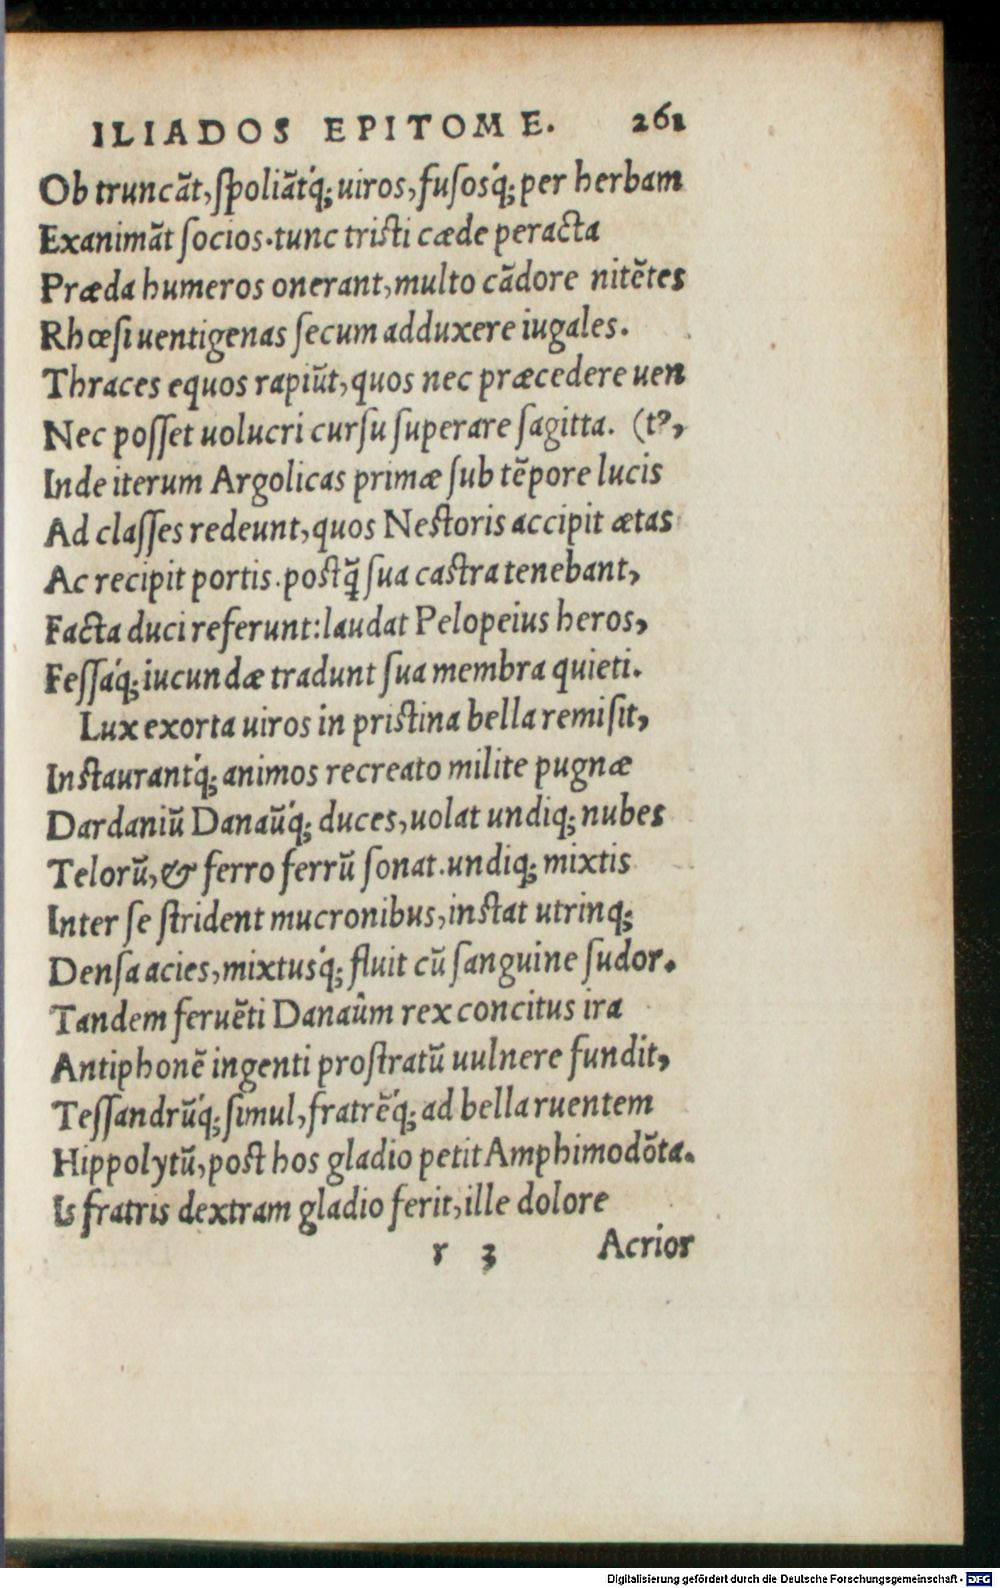 ILIADOS EPITOME. 261
Ob truncāt, ſpoliāt́q; uiros, fuſosq́; per herbam
Exanimāt ſocios. tunc triſti cæde peracta
Præda humeros onerant, multo cādore nitētes
Rhœſi uentigenas ſecum adduxere iugales.
Thraces equos rapiūt, quos nec præcedere uen
Nec poſſet uolucri curſu ſuperare ſagitta. (tꝰ,
Inde iterum Argolicas primæ ſub tēpore lucis
Ad claſſes redeunt, quos Neſtoris accipit ætas
Ac recipit portis. poſtq̄ ſua caſtra tenebant,
Facta duci referunt: laudat Pelopeius heros,
Feſſaq́; iucundæ tradunt ſua membra quieti.
Lux exorta uiros in priſtina bella remiſit,
Inſtaurantq́; animos recreato milite pugnæ
Dardaniū Danaūq́; duces, uolat undiq; nubes
Telorū, & ferro ferrū ſonat. undiq; mixtis
Inter ſe ſtrident mucronibus, inſtat utrinq;
Denſa acies, mixtusq́; fluit cū ſanguine ſudor.
Tandem feruēti Danaûm rex concitus ira
Antiphonē ingenti proſtratū uulnere fundit,
Teſſandrūq́; ſimul, fratrēq́; ad bella ruentem
Hippolytū, poſt hos gladio petit Amphimodōta.
Is fratris dextram gladio ferit, ille dolore
r 3 Acrior
Digitalisierung gefördert durch die Deutsche Forschungsgemeinschaft - DFG